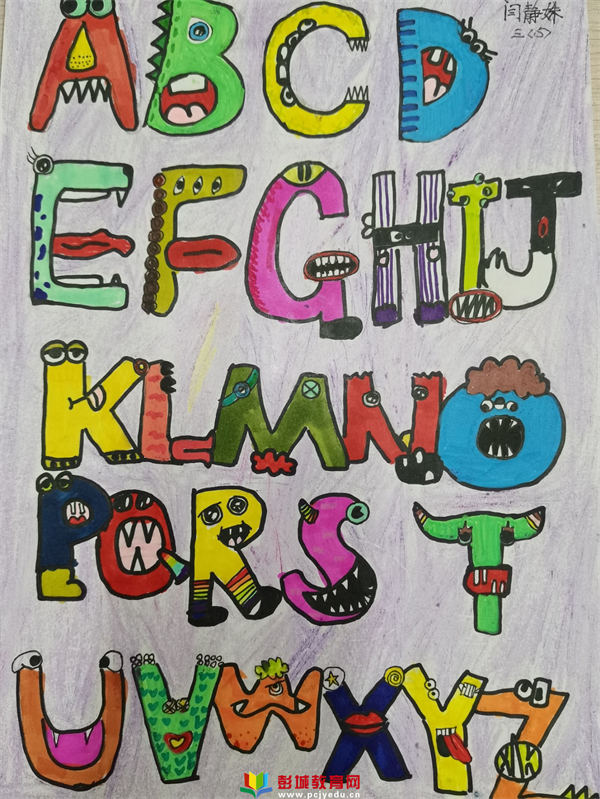 闫静姝
三(5)
A B C D
E F G H I J
K L M N O
P Q R S T
U V W X Y Z
彭城教育网
www.pcjyedu.cn